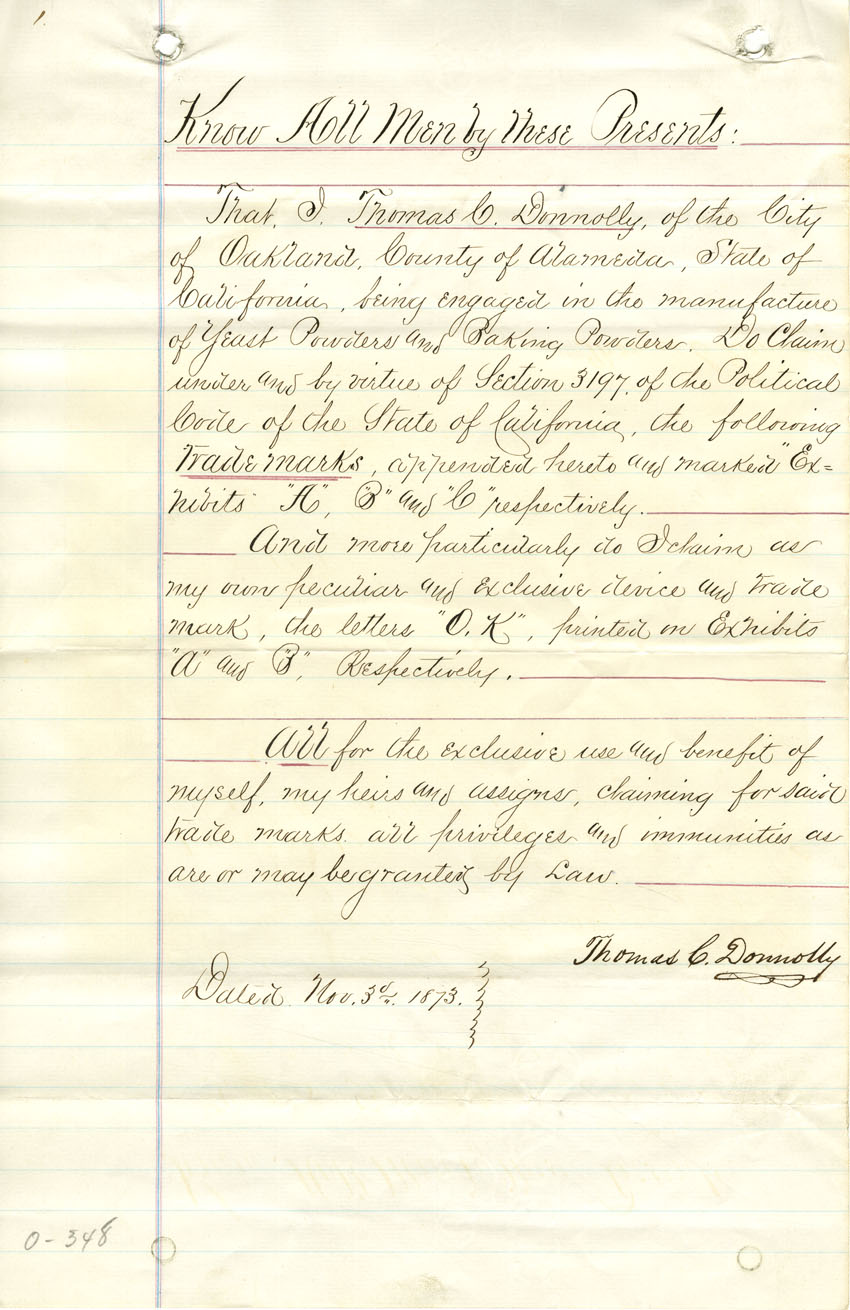 1.
Know All Men by these Presents:
That, I. Thomas C. Donnolly, of the City
of Oakland, County of Alameda, State of
California, being engaged in the manufacture
of Yeast Powders and Baking Powders. Do Claim
under and by virtue of Section 3197. of the Political
Code of the State of California, the following
trade marks, appended hereto and marked "Ex=
hibits "A", "B" and "C" respectively.
And more particularly do I claim as
my own peculiar and exclusive device and trade
mark, the letters "O.K", printed on Exhibits
"A" and "B", Respectively.
All for the exclusive use and benefit of
myself, my heirs and assigns, claiming for said
trade marks all privileges and immunities as
are or may be granted by Law.
Thomas C. Donnolly
Dated. Nov. 3d. 1873.
O-348